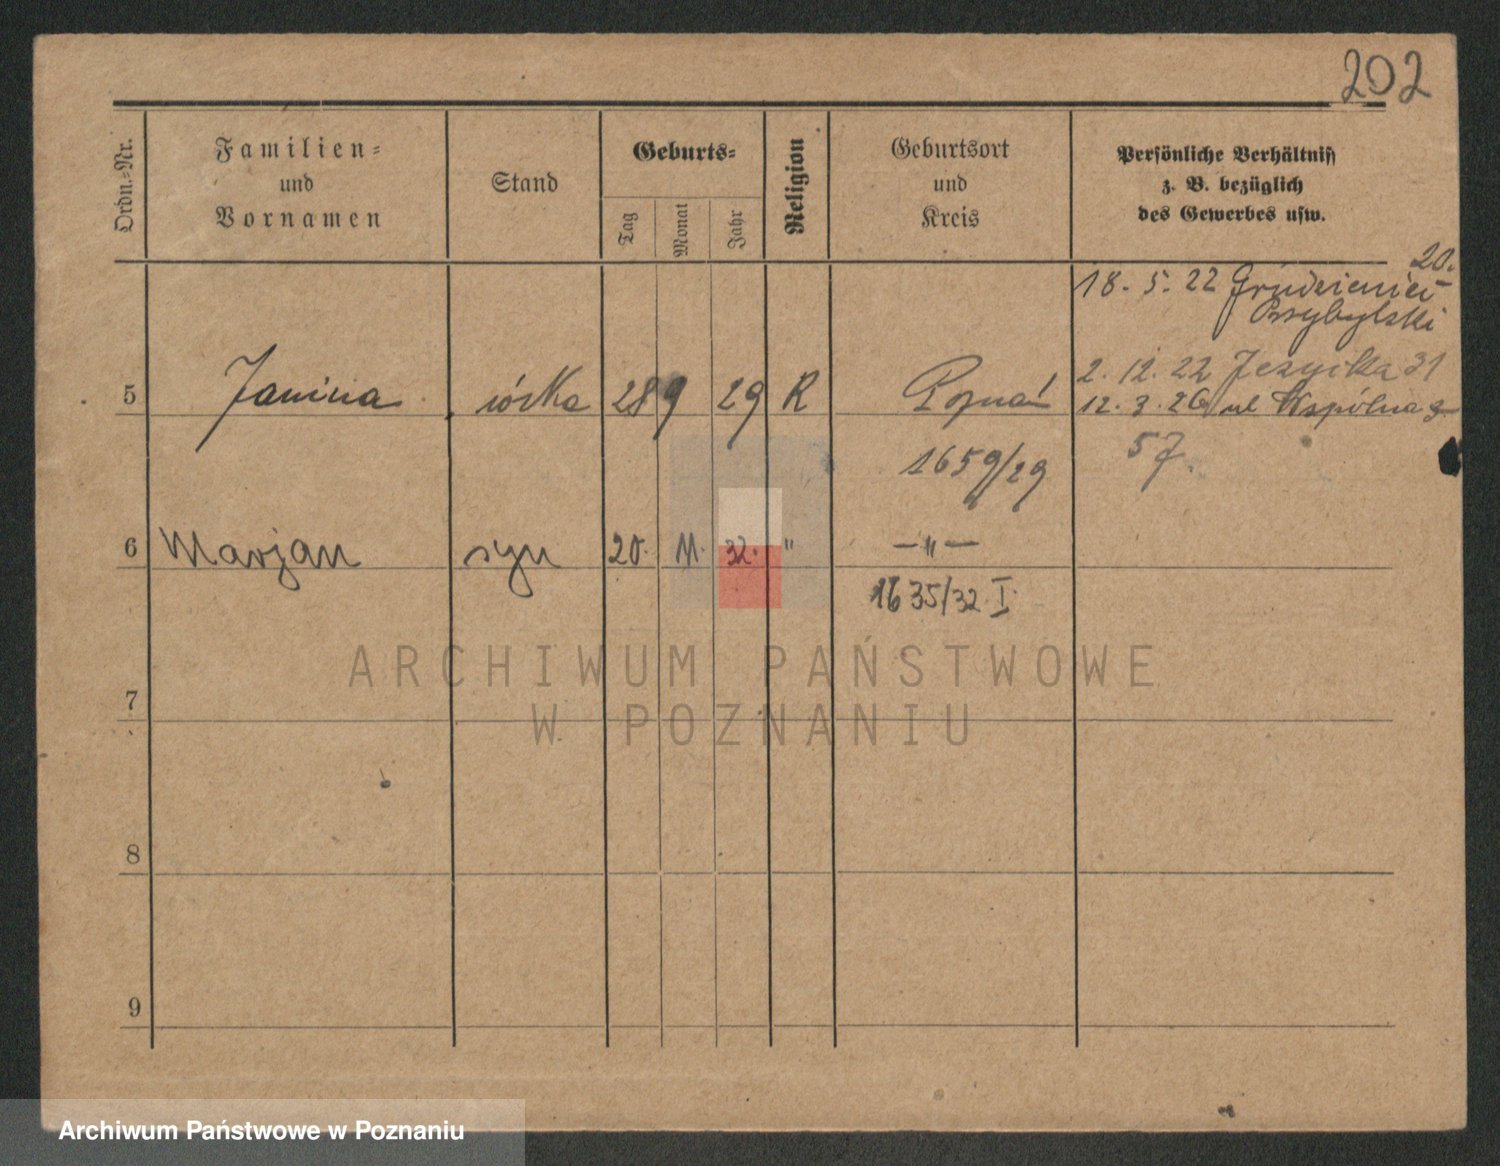 202
Ordn.-Nr.
Familien-
und
Vornamen
Stand
Geburts-
Tag
Monat
Jahr
Religion
Geburtsort
und
Kreis
Persönliche Verhältniss
z. B. bezüglich
des Gewerbes usw.
20.
18. 5. 22 Grudzieniec
Przybylski
2. 12. 22 31
5 Janina córka 28 9 29 R Poznań 12. 3. 26 ul Wspólna
1659/29
57.
6 Marjan syn 20. 11. 32. " — " —
1635/32 I.
ARCHIWUM PAŃSTWOWE
W POZNANIU
7
8
9
Archiwum Państwowe w Poznaniu